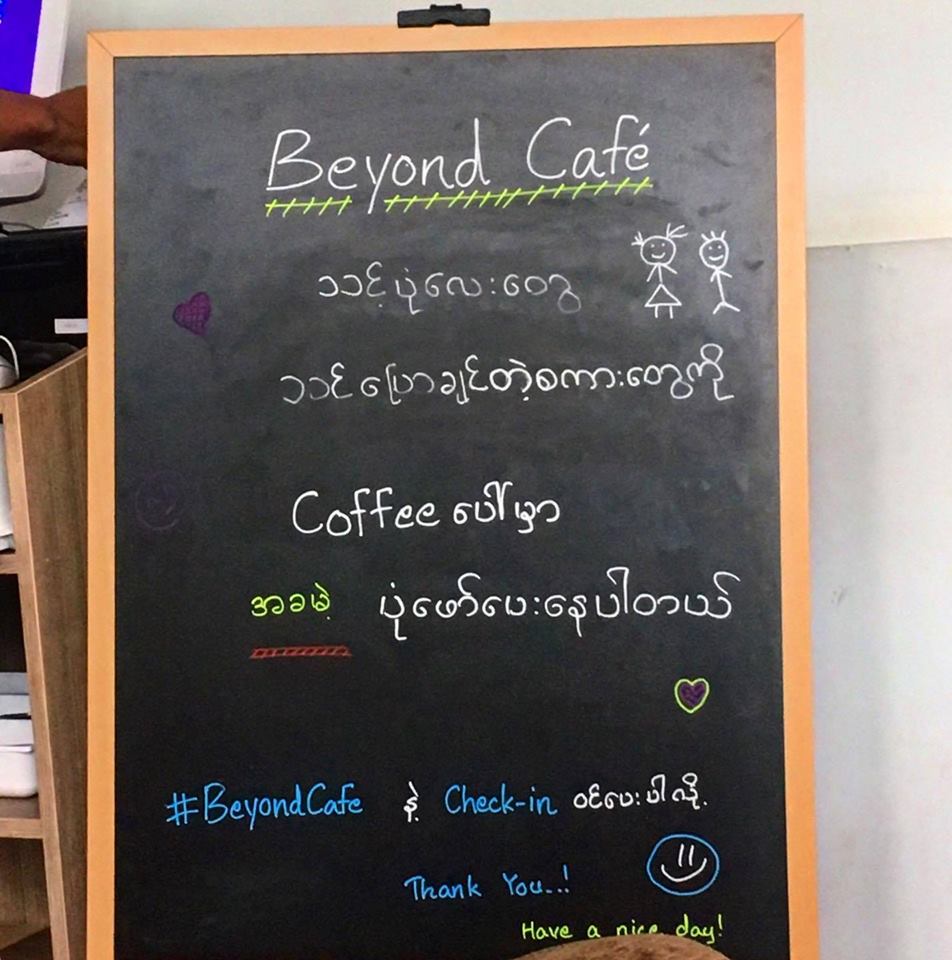 Beyond Café
သင့်ပုံလေးတွေ
သင်ပြောချင်တဲ့စကားတွေကို
Coffee ပေါ်မှာ
အခမဲ့ ပုံဖော်ပေးနေပါတယ်
#BeyondCafe နဲ့ Check-in ဝင်ပေးပါလို့.
Thank You..!
Have a nice day!